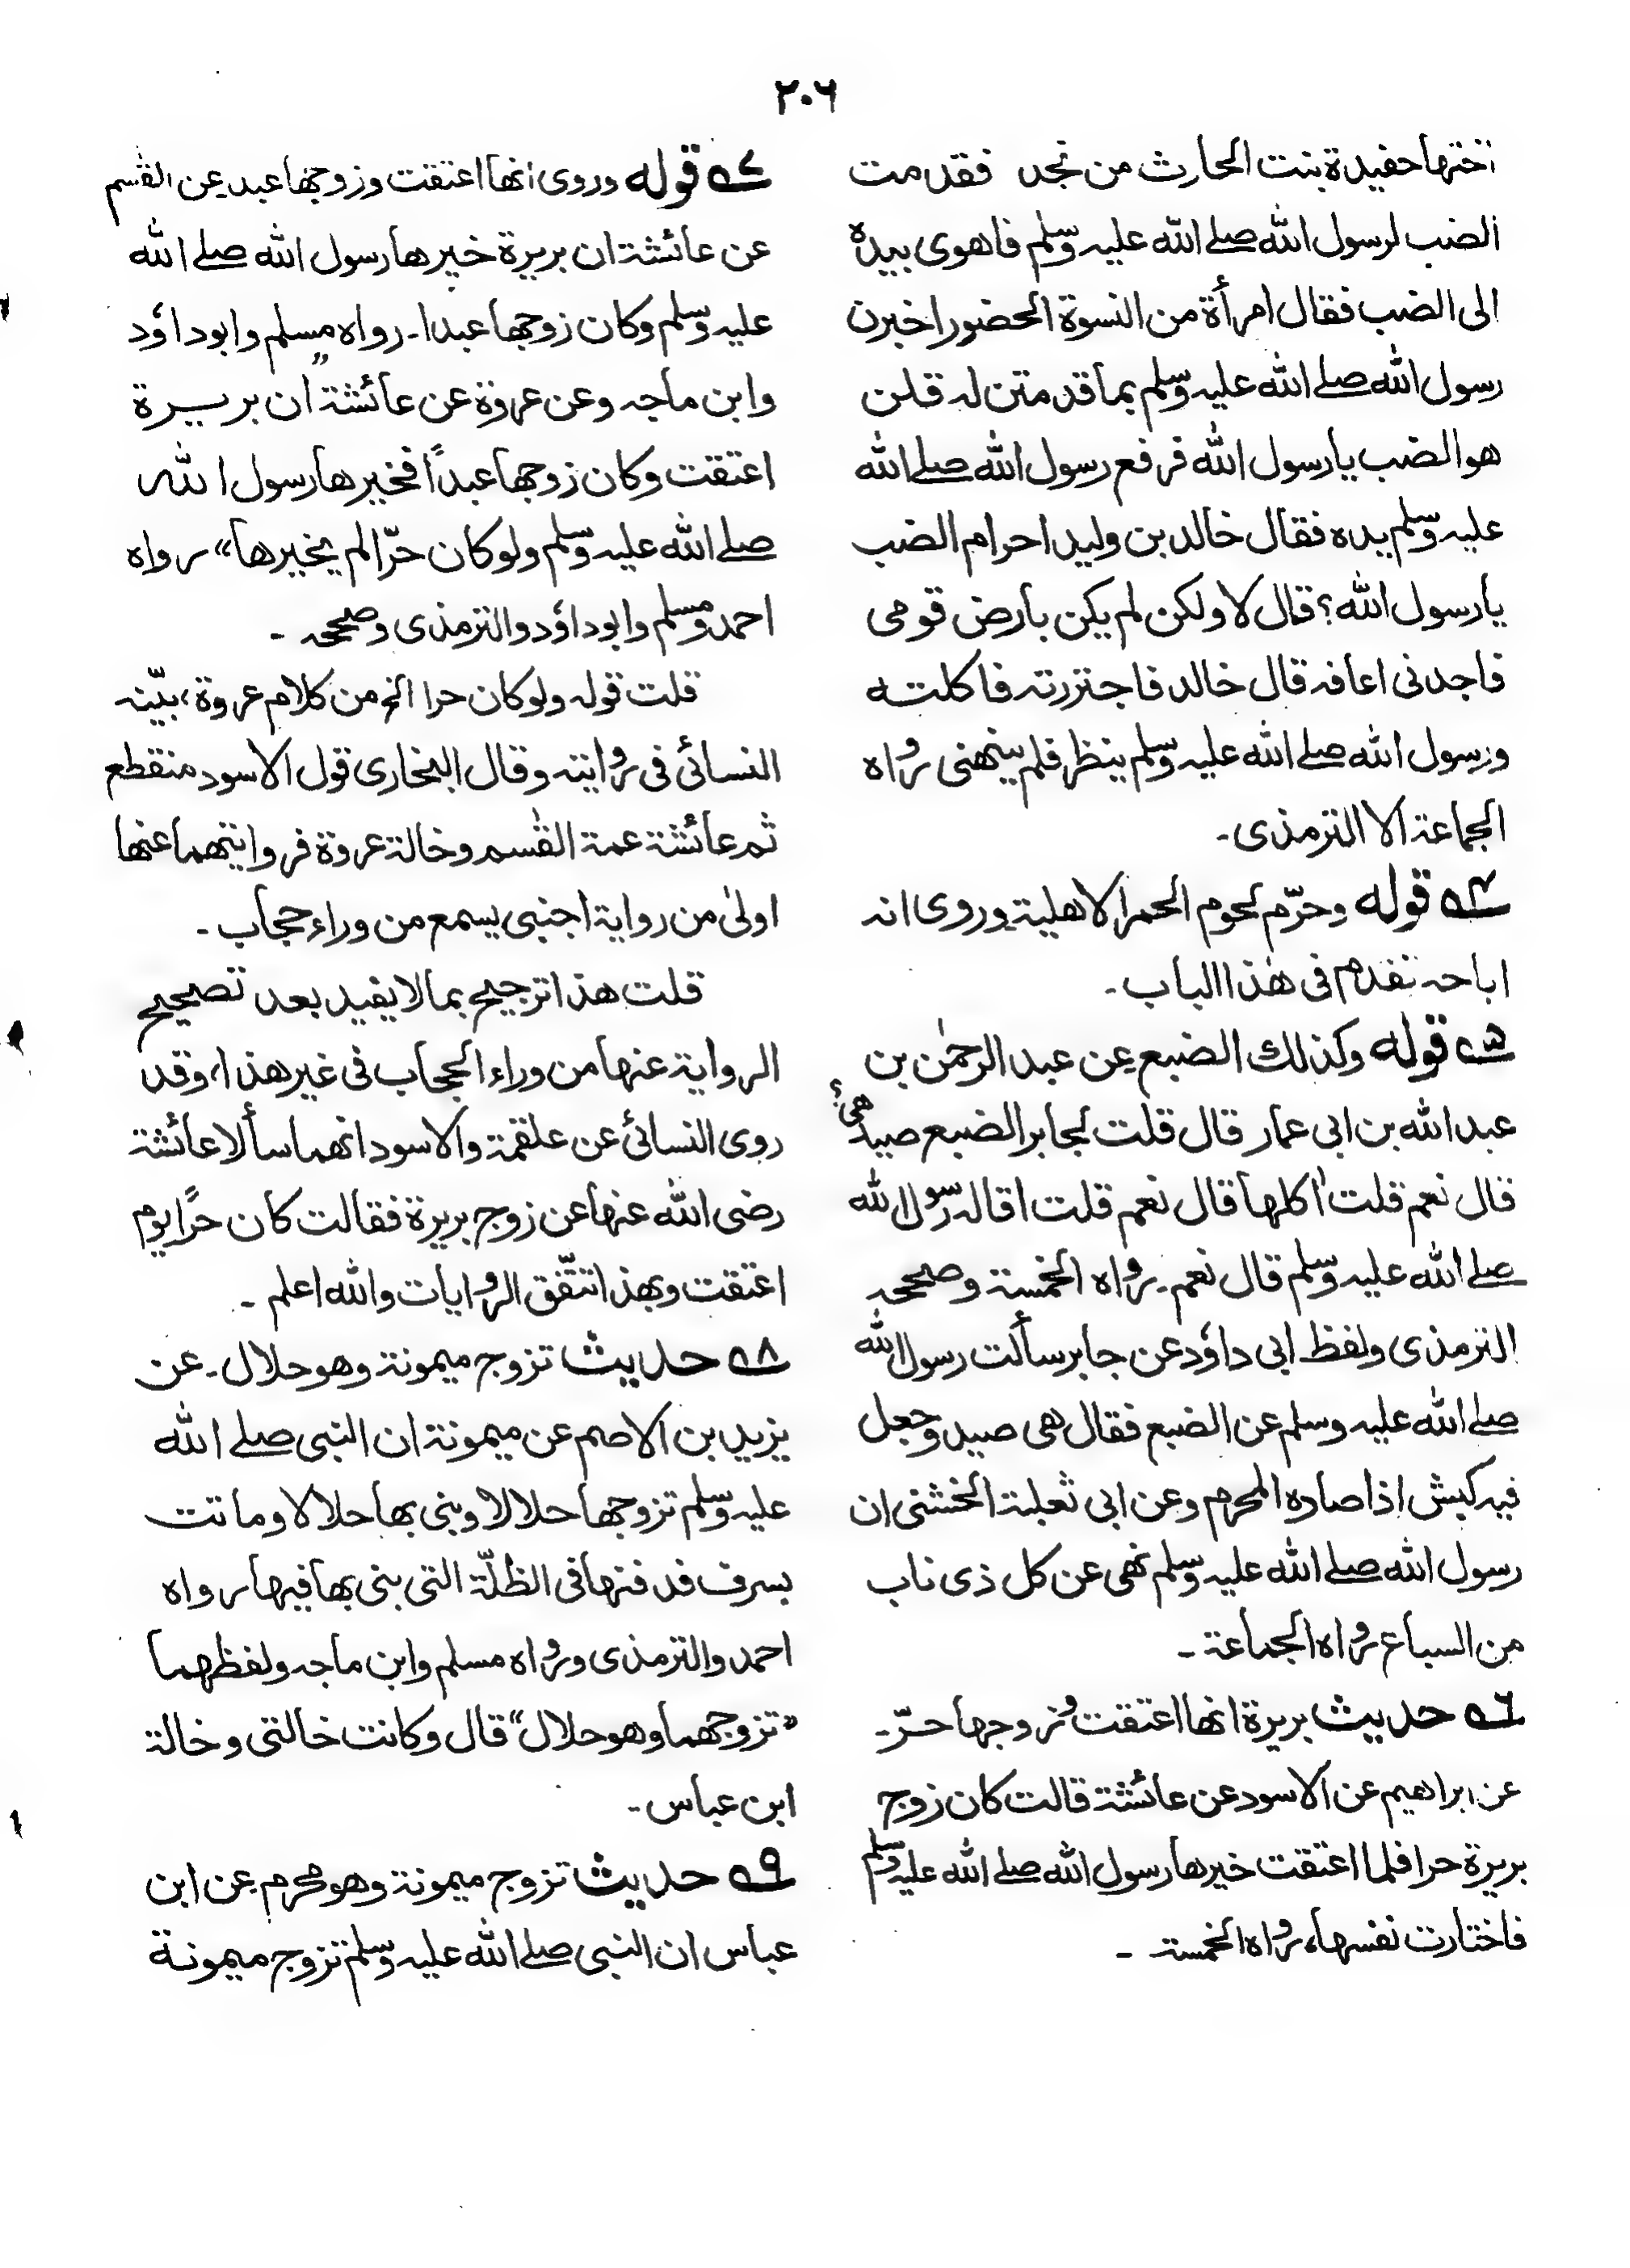 ۲۰۶
اختها حفيدة بنت الحارث من نجد فقدمت
الضب لرسول الله صلے الله عليه وسلم فاهوى بيده
الى الضب فقال امرأة من النسوة الحضور اخبرن
رسول الله صلے الله عليه وسلم بما قدمتن له قلن
هو الضب يا رسول الله فرفع رسول الله صلے الله
عليه وسلم يده فقال خالد بن وليد احرام الضب
يا رسول الله؟ قال لا ولكن لم يكن بارض قومى
فاجدنى اعافه قال خالد فاجتزرته فاكلته
ورسول الله صلے الله عليه وسلم ينظر فلم ينهنى رواه
الجماعة الا الترمذى۔
۴ قوله وحرّم لحوم الحمر الاهلية وروى انه
اباحه تقدم فى هٰذا الباب۔
۵ قوله وكذلك الضبع عن عبد الرحمٰن بن
عبد الله بن ابى عمار قال قلت لجابر الضبع صيد هى؟
قال نعم قلت اٰكلها قال نعم قلت اقاله رسول الله
صلے الله عليه وسلم قال نعم۔ رواه الخمسة وصححه
الترمذى ولفظ ابى داؤد عن جابر سألت رسول الله
صلے الله عليه وسلم عن الضبع فقال هى صيد وجعل
فيه كبش اذا صاده المحرم وعن ابى ثعلبة الخشنى ان
رسول الله صلے الله عليه وسلم نهى عن كل ذى ناب
من السباع رواه الجماعة۔
۶ حديث بريرة انها اعتقت وزوجها حرّ۔
عن ابراهيم عن الاسود عن عائشة قالت كان زوج
بريرة حرا فلما اعتقت خيرها رسول الله صلے الله عليه وسلم
فاختارت نفسها، رواه الخمسة۔
۷ قوله وروى انها اعتقت وزوجها عبد عن القٰسم
عن عائشة ان بريرة خيرها رسول الله صلے الله
عليه وسلم وكان زوجها عبدا۔ رواه مسلم وابو داؤد
وابن ماجه وعن عروة عن عائشة "ان بريرة
اعتقت وكان زوجها عبداً فخيرها رسول الله
صلے الله عليه وسلم ولو كان حرّا لم يخيرها" رواه
احمد ومسلم وابو داؤد والترمذى وصححه۔
قلت قوله ولو كان حرا الخ من كلام عروة، بيّنه
النسائى فى روايته وقال البخارى قول الاسود منقطع
ثم عائشة عمة القٰسم وخالة عروة فروايتهما عنها
اولىٰ من رواية اجنبى يسمع من وراء حجاب۔
قلت هذا ترجيح بما لا يفيد بعد تصحيح
الرواية عنها من وراء الحجاب فى غير هذا، وقد
روى النسائى عن علقمة والاسود انهما سألا عائشة
رضى الله عنها عن زوج بريرة فقالت كان حرًا يوم
اعتقت وبهذا تتّفق الروايات والله اعلم۔
۸ حديث تزوج ميمونة وهو حلال۔ عن
يزيد بن الاصم عن ميمونة ان النبى صلے الله
عليه وسلم تزوجها حلالا وبنى بها حلالا وماتت
بسرف فدفنها فى الظلّة التى بنى بها فيها رواه
احمد والترمذى ورواه مسلم وابن ماجه ولفظهما
"تزوجهما وهو حلال" قال وكانت خالتى وخالة
ابن عباس۔
۹ حديث تزوج ميمونة وهو محرم عن ابن
عباس ان النبى صلے الله عليه وسلم تزوج ميمونة